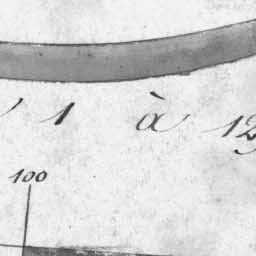 1 à 12
100